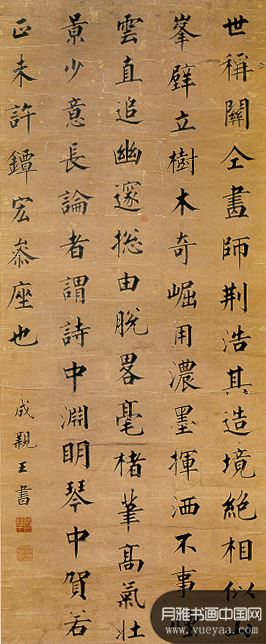 世稱關仝畫師荆浩其造境絕相似
峯壁立樹木奇崛用濃墨揮洒不事
雲直追幽邃捴由脫畧毫楮筆高氣壯
景少意長論者謂詩中淵明琴中賀若
正未許鐔宏叅座也
成親王書
月雅书画中国网
www.yueyaa.com